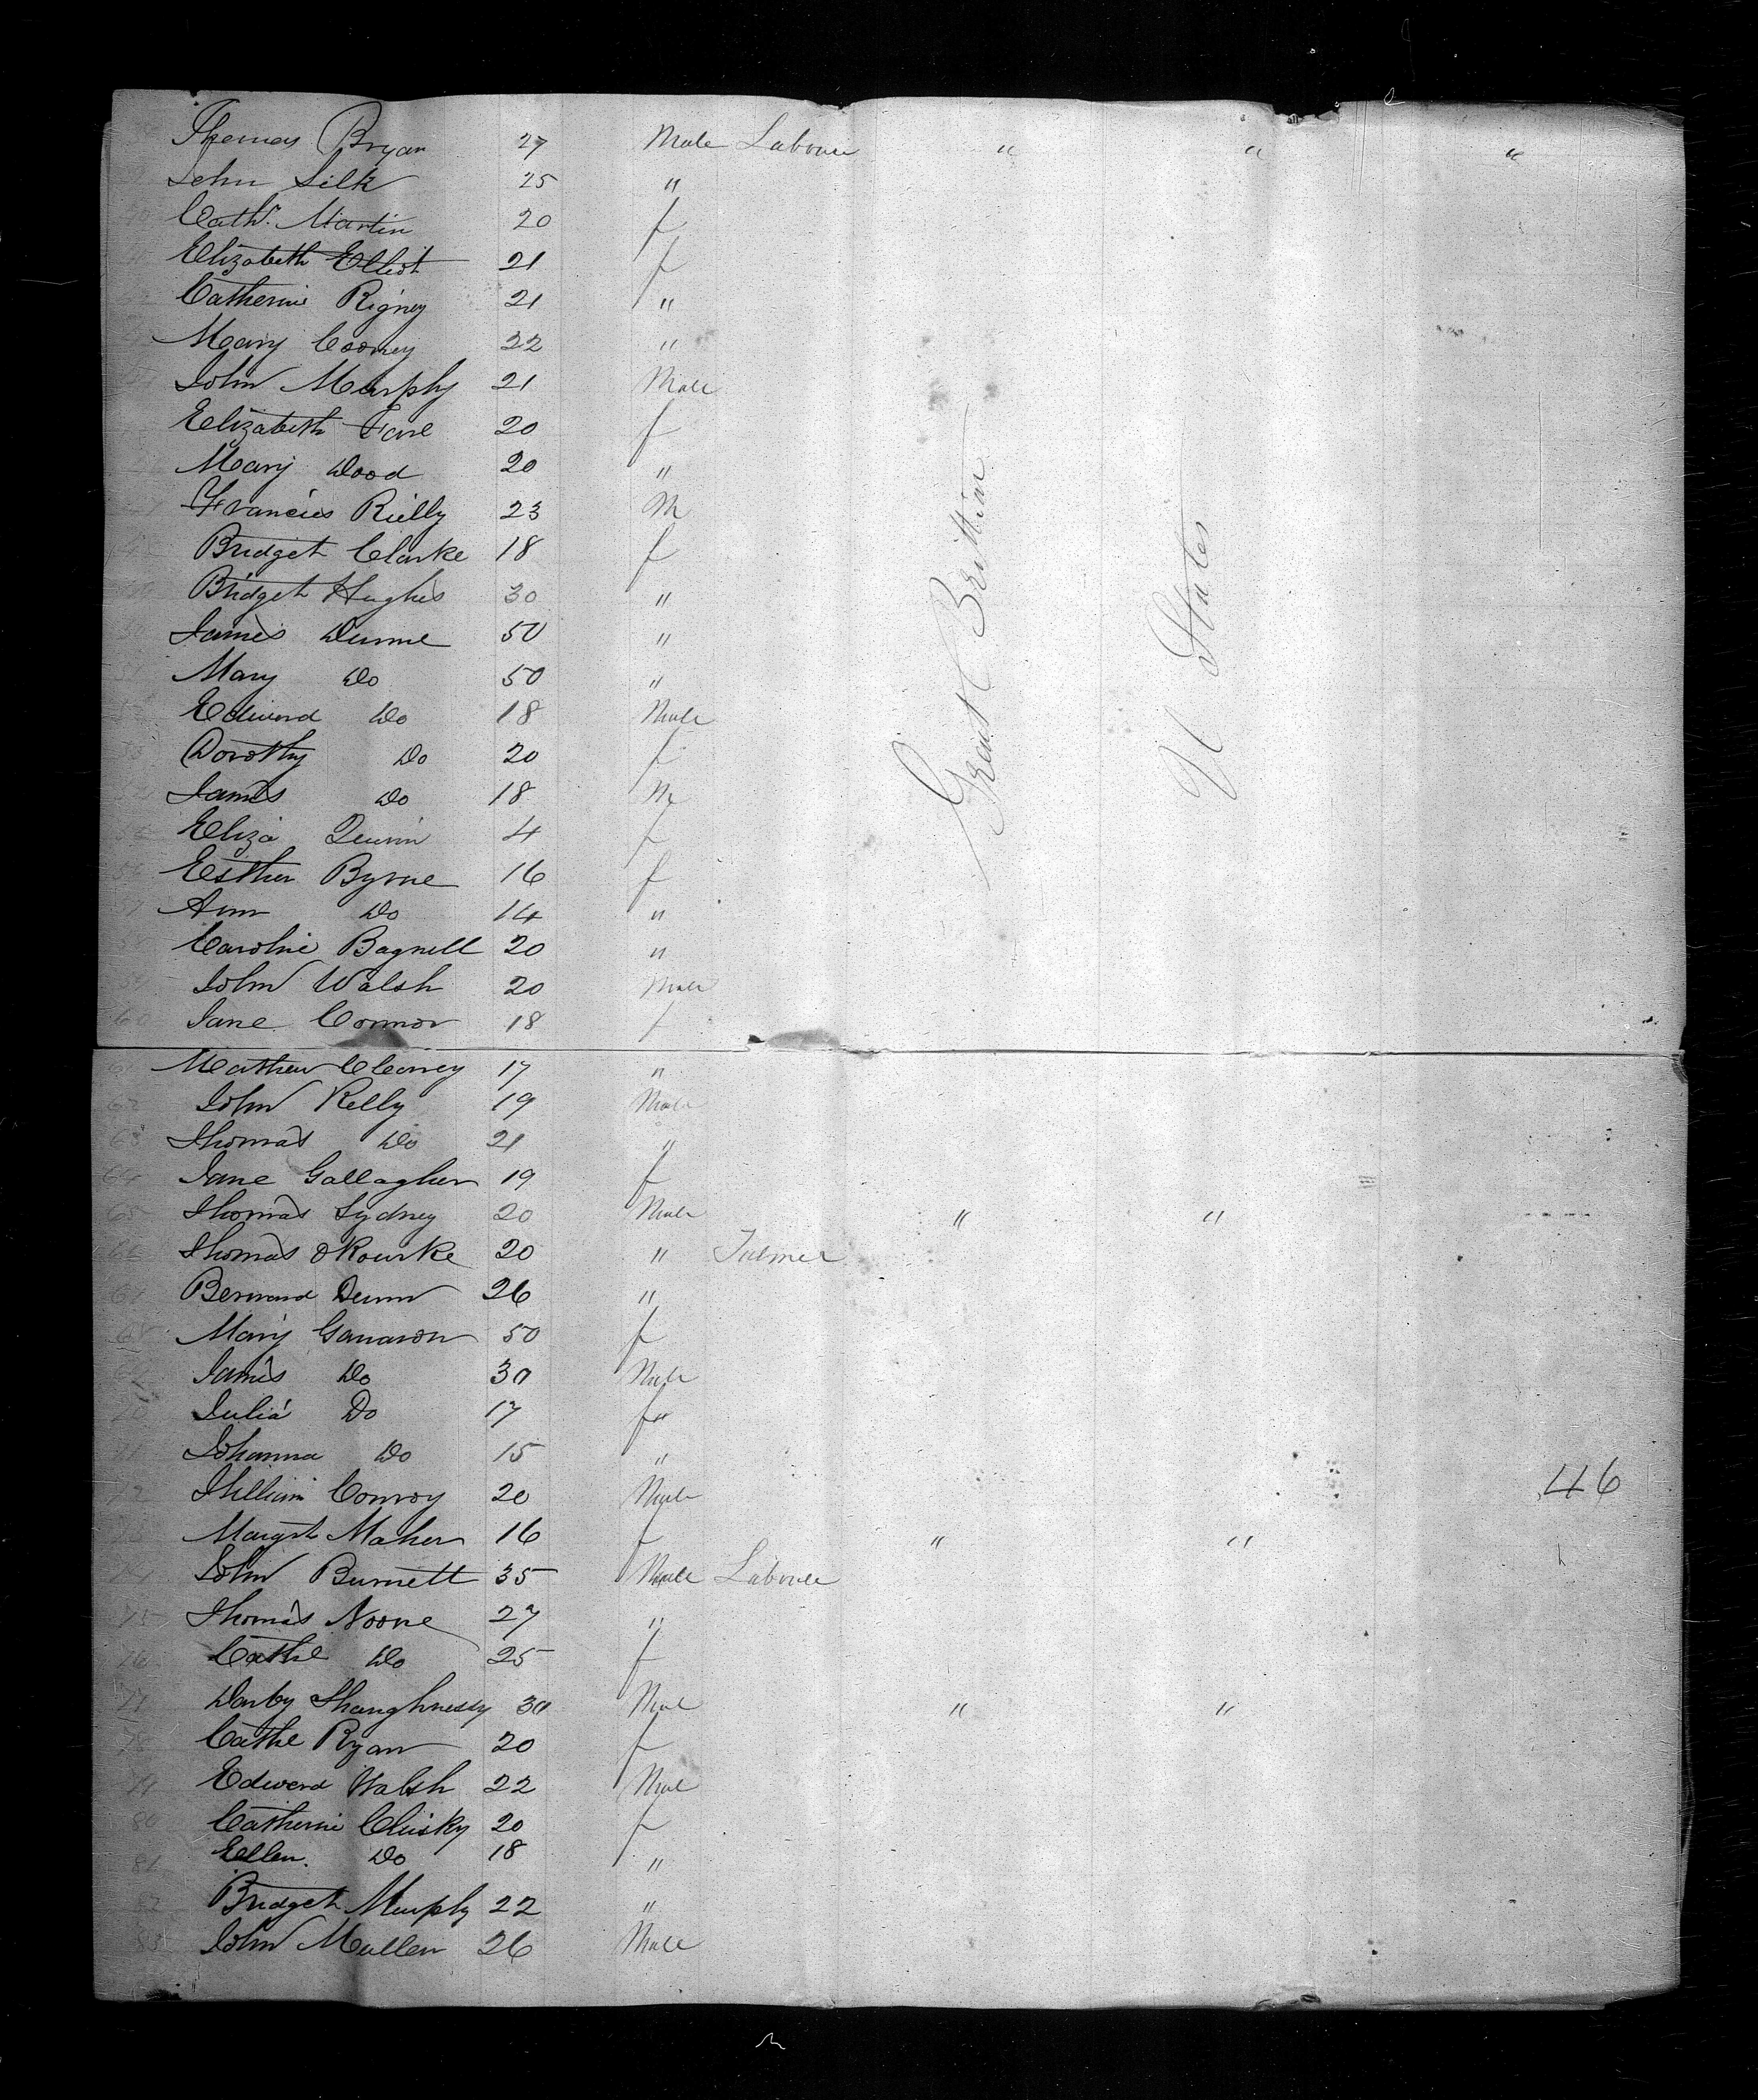 Thomas Bryan 27 Male Laboure " " "
John Silk 25 "
Cathr. Martin 20 f
Elizabeth Elliot 21 f
Catherine Rigney 21 "
Mary Cooney 22 "
John Murphy 21 Male
Elizabeth 20 f
Mary Wood 20 "
Francies Rielly 23 M
Bridget Clarke 18 f
Bridget Hughes 30 "
James Dunne 50 "
Mary Do 50 "
Edward Do 18 Male
Dorothy Do 20 f
James Do 18 M
Eliza Quinn 4 f
Esther Byrne 16 f
Ann Do 14 "
Caroline Bagnell 20 "
John Walsh 20 Male
60 Jane Connor 18 f
Great Brittian
U States
61 Mathew 17 "
62 John Kelly 19 Male
63 Thomas Do 21 "
64 Jane Gallagher 19 f
65 Thomas Sydney 20 Male " "
66 Thomas ORourke 20 "
67 Bernard Dunn 26 "
68 Mary 50 f
69 James Do 30 Male
70 Julia Do 17 f "
71 Johanna Do 15 "
72 William Conroy 20 Male 46
73 Margrt Maher 16 f " "
74 John Burnett 35 Male Laboure
75 Thomas Noone 27 "
76 Cathe Do 25 f
77 Darby Shaughnessy 30 Male " "
78 Cathe Ryan 20 f
79 Edward Walsh 22 Male
80 Catherine Cluisky 20 f
81 Ellen Do 18 "
82 Bridget Murphy 22 "
83 John Mullen 26 Male